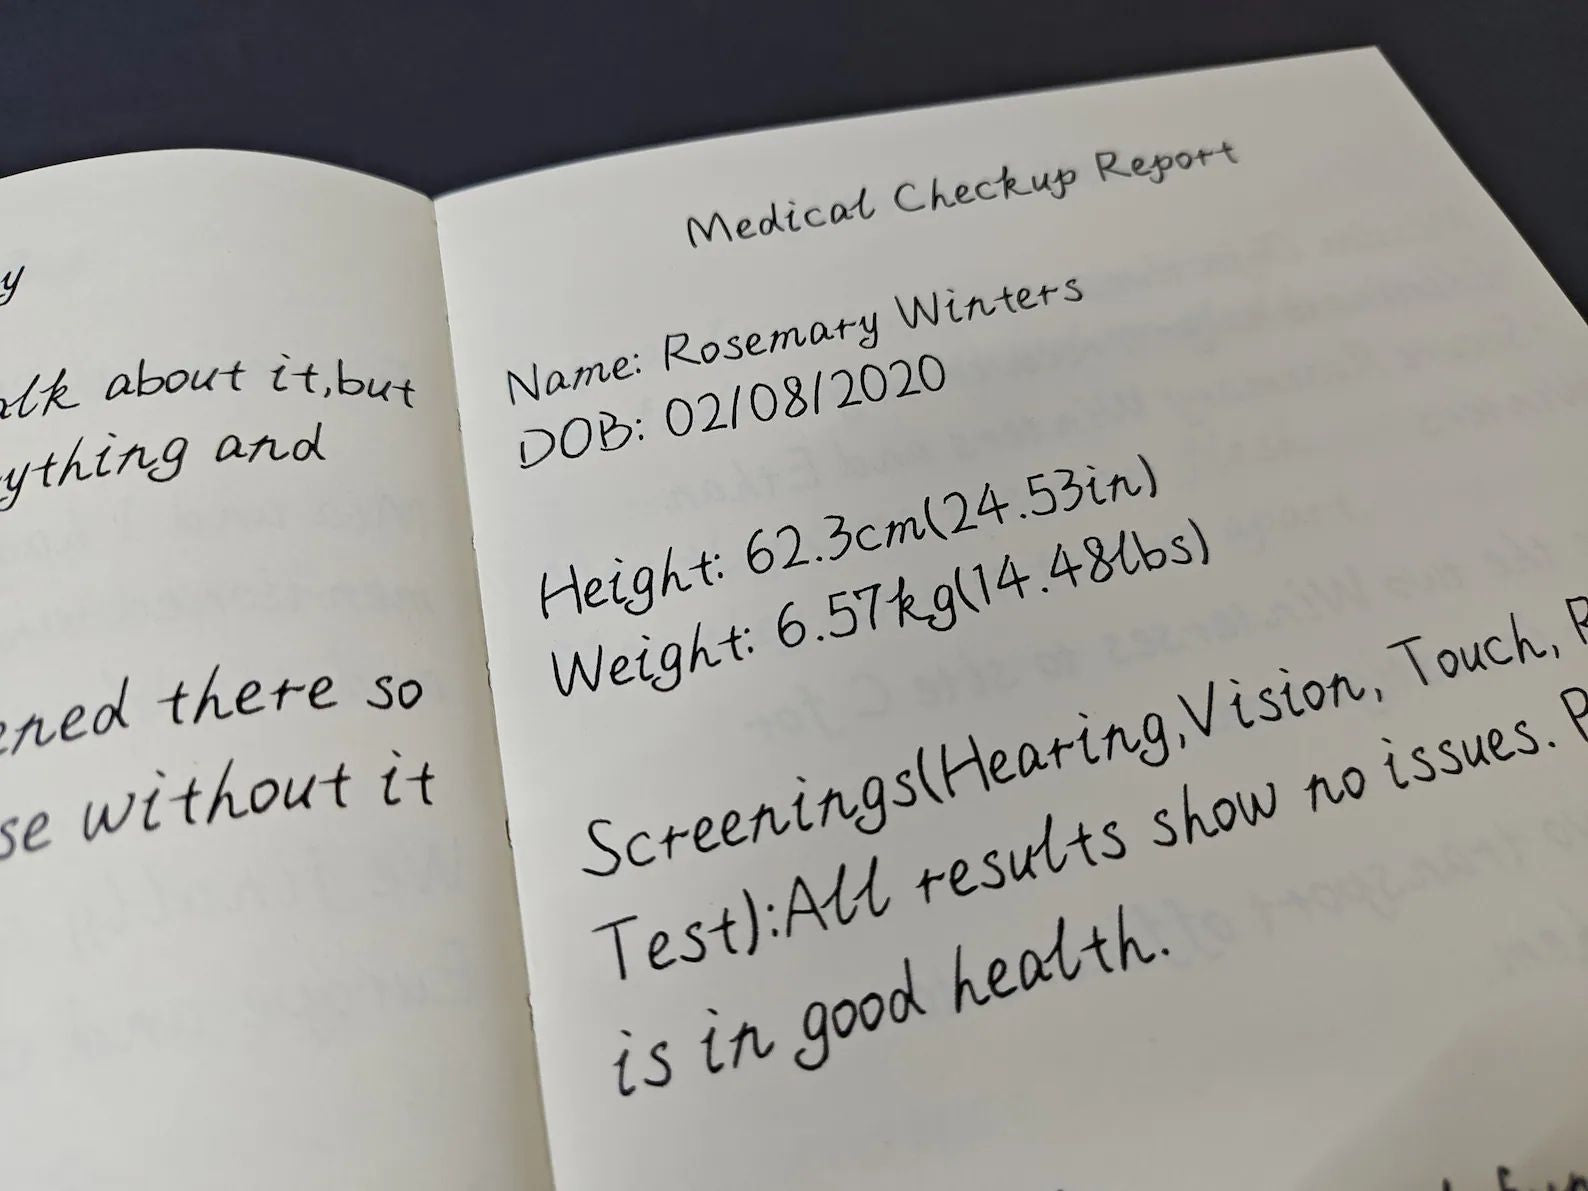 y
alk about it,but
ything and
ened there so
se without it
Medical Checkup Report
Name: Rosemary Winters
DOB: 02/08/2020
Height: 62.3cm(24.53in)
Weight: 6.57kg(14.48lbs)
Screenings(Hearing,Vision, Touch, R
Test):All results show no issues. P
is in good health.